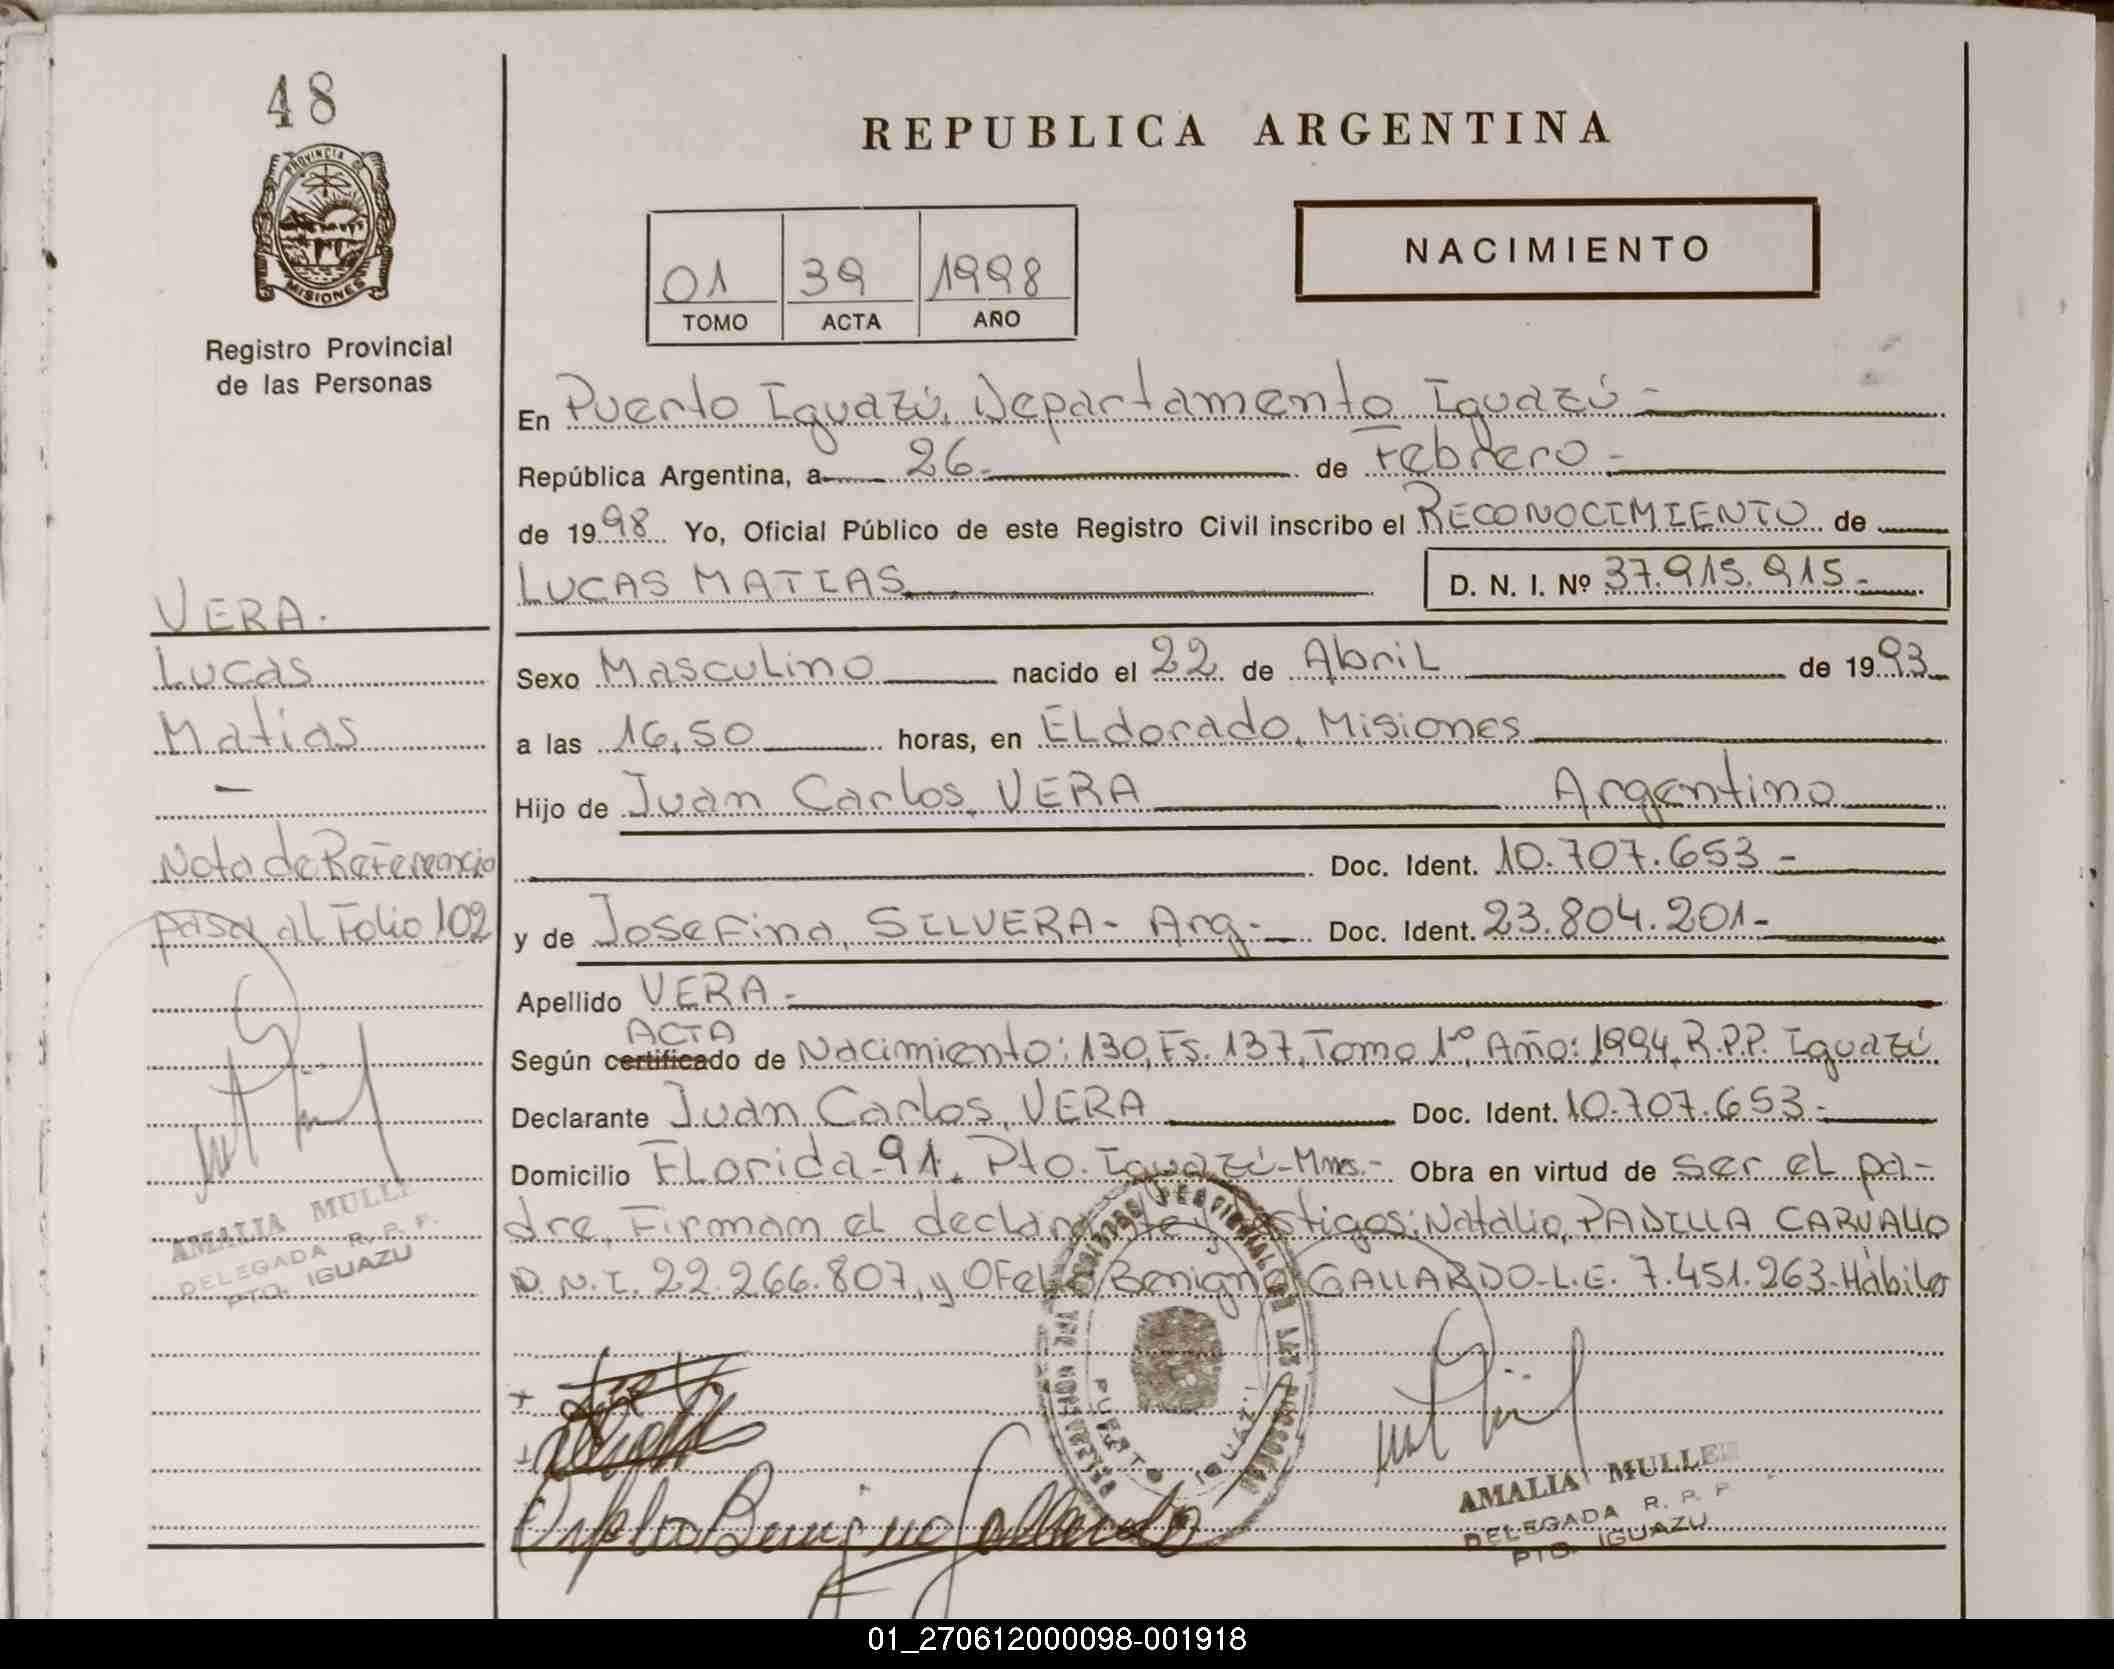 48
PROVINCIA DE
MISIONES
Registro Provincial
de las Personas
REPUBLICA ARGENTINA
NACIMIENTO
01 39 1998
TOMO ACTA AÑO
En Puerto Iguazú, Departamento Iguazú -
República Argentina, a 26 - de Febrero -
de 1998 Yo, Oficial Público de este Registro Civil inscribo el RECONOCIMIENTO de
LUCAS MATIAS D. N. I. Nº 37.915.915.-
VERA.
Lucas
Matias
-
Nota de Referencia
pasa al Folio 102
AMALIA MULLE
DELEGADA R. P. P.
PTO. IGUAZU
Sexo Masculino nacido el 22 de Abril de 1993
a las 16,50 horas, en Eldorado, Misiones
Hijo de Juan Carlos, VERA Argentino
Doc. Ident. 10.707.653 -
y de Josefina, SILVERA - Arg.- Doc. Ident. 23.804.201 -
Apellido VERA -
ACTA
Según certificado de Nacimiento: 130, Fs. 137, Tomo 1º, Año: 1994, R.P.P. Iguazú
Declarante Juan Carlos, VERA Doc. Ident. 10.707.653 -
Domicilio Florida - 91, Pto. Iguazú - Mnes.- Obra en virtud de ser el pa-
dre, Firman el declarante y testigos: Natalio, PADILLA CARVALLO
D.N.I. 22.266.807, y Ofelio Benigno GALLARDO - L.E. 7.451.263 - Hábiles
REGISTRO PROVINCIAL DE LAS PERSONAS
PUERTO IGUAZÚ
Ofelio Benigno Gallardo
AMALIA MULLER
DELEGADA R. P. P.
PTO. IGUAZU
01_270612000098-001918